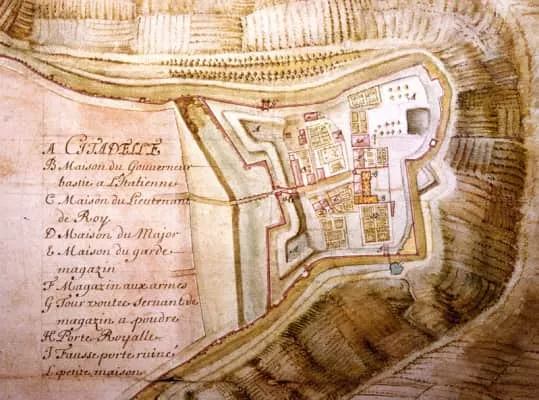 A CITADELLE
B Maison du Gouverneur
bastie a L'Italienne
C Maison du Lieutenant
de Roy
D Maison du Major
E Maison du garde
magazin
F Magazin aux armes
G Tour voutee servant de
magazin a poudre
H Porte Royalle
I Fausse porte ruiné
L petite maison